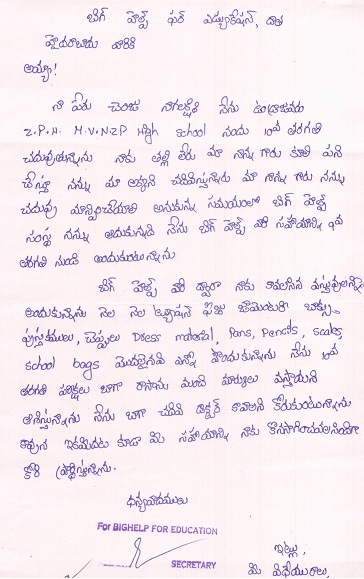 బిగ్ హెల్ప్ ఫర్ ఎడ్యుకేషన్, దాత
హైదరాబాదు వారికి
అయ్యా!
నా పేరు చెంచు నాగలక్ష్మి నేను
Z.P.H. M.V.N.Z.P High school నందు 10వ తరగతి
చదువుతున్నాను నాకు తల్లి లేదు మా నాన్న గారు కూలి పని
చేస్తూ నన్ను మా అక్కని చదివిస్తున్నారు మా నాన్న గారు నన్ను
చదువు మాన్పించేయాలి అనుకున్న సమయంలో బిగ్ హెల్ప్
సంస్థ నన్ను ఆదుకున్నది నేను బిగ్ హెల్ప్ వారి సహాయాన్ని 9వ
తరగతి నుండి అందుకుంటున్నాను
బిగ్ హెల్ప్ వారి ద్వారా నాకు కావలసిన వస్తువులన్నీ
అందుకున్నాను నెల నెల ట్యూషన్ ఫీజు జామెంటరీ బాక్సు
పుస్తకములు, చెప్పులు Dress material, Pens, Pencils, scales
school bags మొదలైనవి ఎన్నో పొందుకున్నాను నేను 10వ
తరగతి పరీక్షలు బాగా రాసాను మంచి మార్కులు వస్తాయని
ఆశిస్తున్నాను నేను బాగా చదివి డాక్టర్ కావాలని కోరుకుంటున్నాను
కావున ఇకమీదట కూడా మీ సహాయాన్ని నాకు కొనసాగించవలసిందిగా
కోరి ప్రార్థిస్తున్నాను.
ధన్యవాదములు
For BIGHELP FOR EDUCATION
SECRETARY
ఇట్లు,
మీ విధేయురాలు,